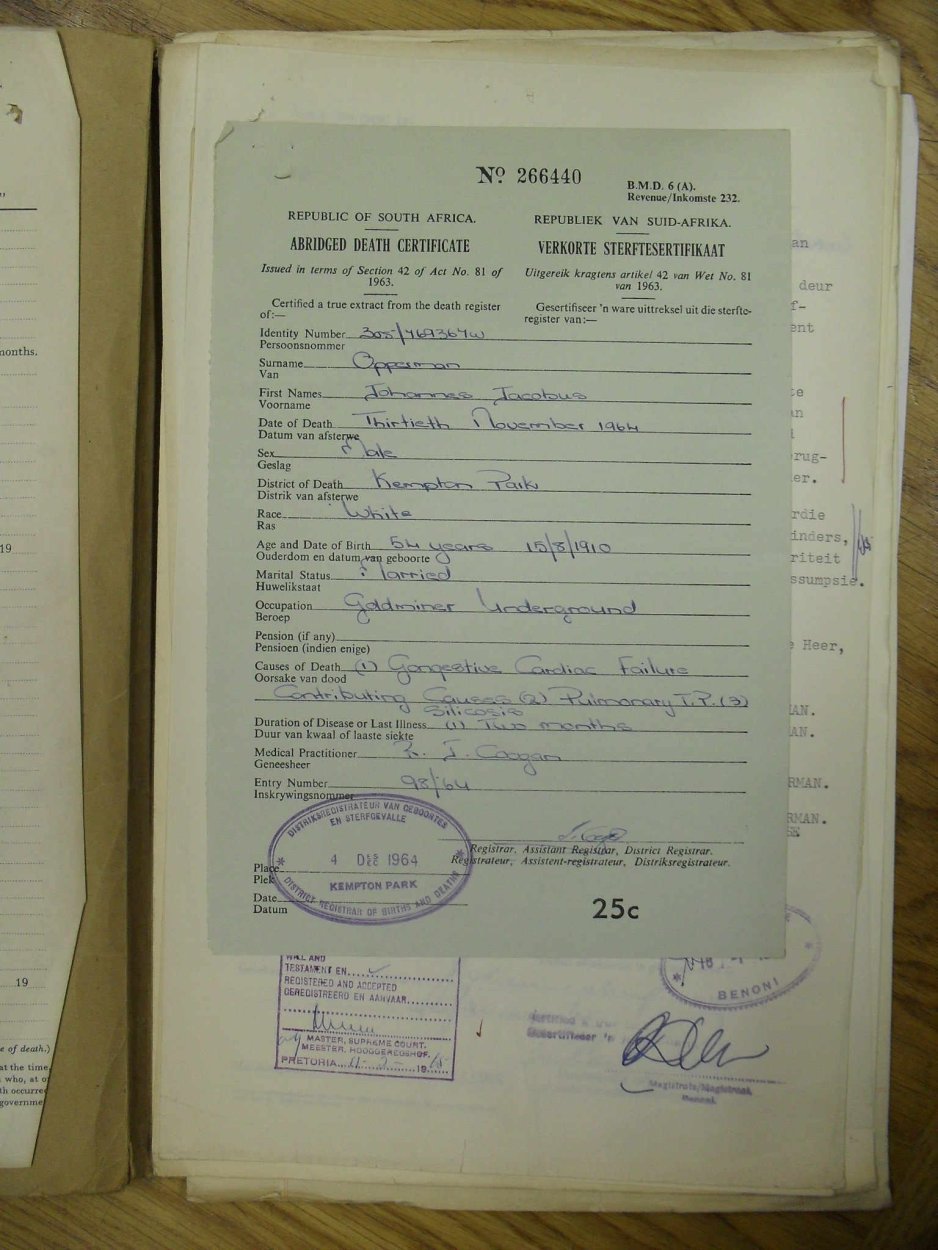 No 266440
B.M.D. 6 (A).
Revenue/Inkomste 232.
REPUBLIC OF SOUTH AFRICA.
REPUBLIEK VAN SUID-AFRIKA.
ABRIDGED DEATH CERTIFICATE
VERKORTE STERFTESERTIFIKAAT
Issued in terms of Section 42 of Act No. 81 of
1963.
Uitgereik kragtens artikel 42 van Wet No. 81
van 1963.
Certified a true extract from the death register
of:—
Gesertifiseer 'n ware uittreksel uit die sterfte-
register van:—
Identity Number 308/769367W
Persoonsnommer
Surname Opperman
Van
First Names Johannes Jacobus
Voorname
Date of Death Thirtieth November 1964
Datum van afsterwe
Sex Male
Geslag
District of Death Kempton Park
Distrik van afsterwe
Race White
Ras
Age and Date of Birth 54 years 15/8/1910
Ouderdom en datum van geboorte
Marital Status Married
Huwelikstaat
Occupation Goldminer Underground
Beroep
Pension (if any)
Pensioen (indien enige)
Causes of Death (1) Congestive Cardiac Failure
Oorsake van dood
Contributing Causes (2) Pulmonary T.B. (3)
Silicosis
Duration of Disease or Last Illness (1) Two months
Duur van kwaal of laaste siekte
Medical Practitioner
Geneesheer
Entry Number 98/64
Inskrywingsnommer
DISTRIKSREGISTRATEUR VAN GEBOORTES
EN STERFGEVALLE
4 DES DEC 1964
KEMPTON PARK
DISTRICT REGISTRAR OF BIRTHS AND DEATHS
Registrar, Assistant Registrar, District Registrar.
Registrateur, Assistent-registrateur, Distriksregistrateur.
Place
Plek
Date
Datum
25c
WILL AND
TESTAMENT EN
REGISTERED AND ACCEPTED
GEREGISTREERD EN AANVAAR
MASTER, SUPREME COURT.
MEESTER, HOOGGEREGSHOF.
PRETORIA
BENONI
Magistrate/Magistraat
Benoni.
months.
19
19
e of death.)
at the time
who, at
th occurre
governme
an
deur
f-
ent
te
an
rug-
er.
rdie
inders,
riteit
ssumpsie.
e Heer,
AN.
AN.
RMAN.
RMAN.
SE